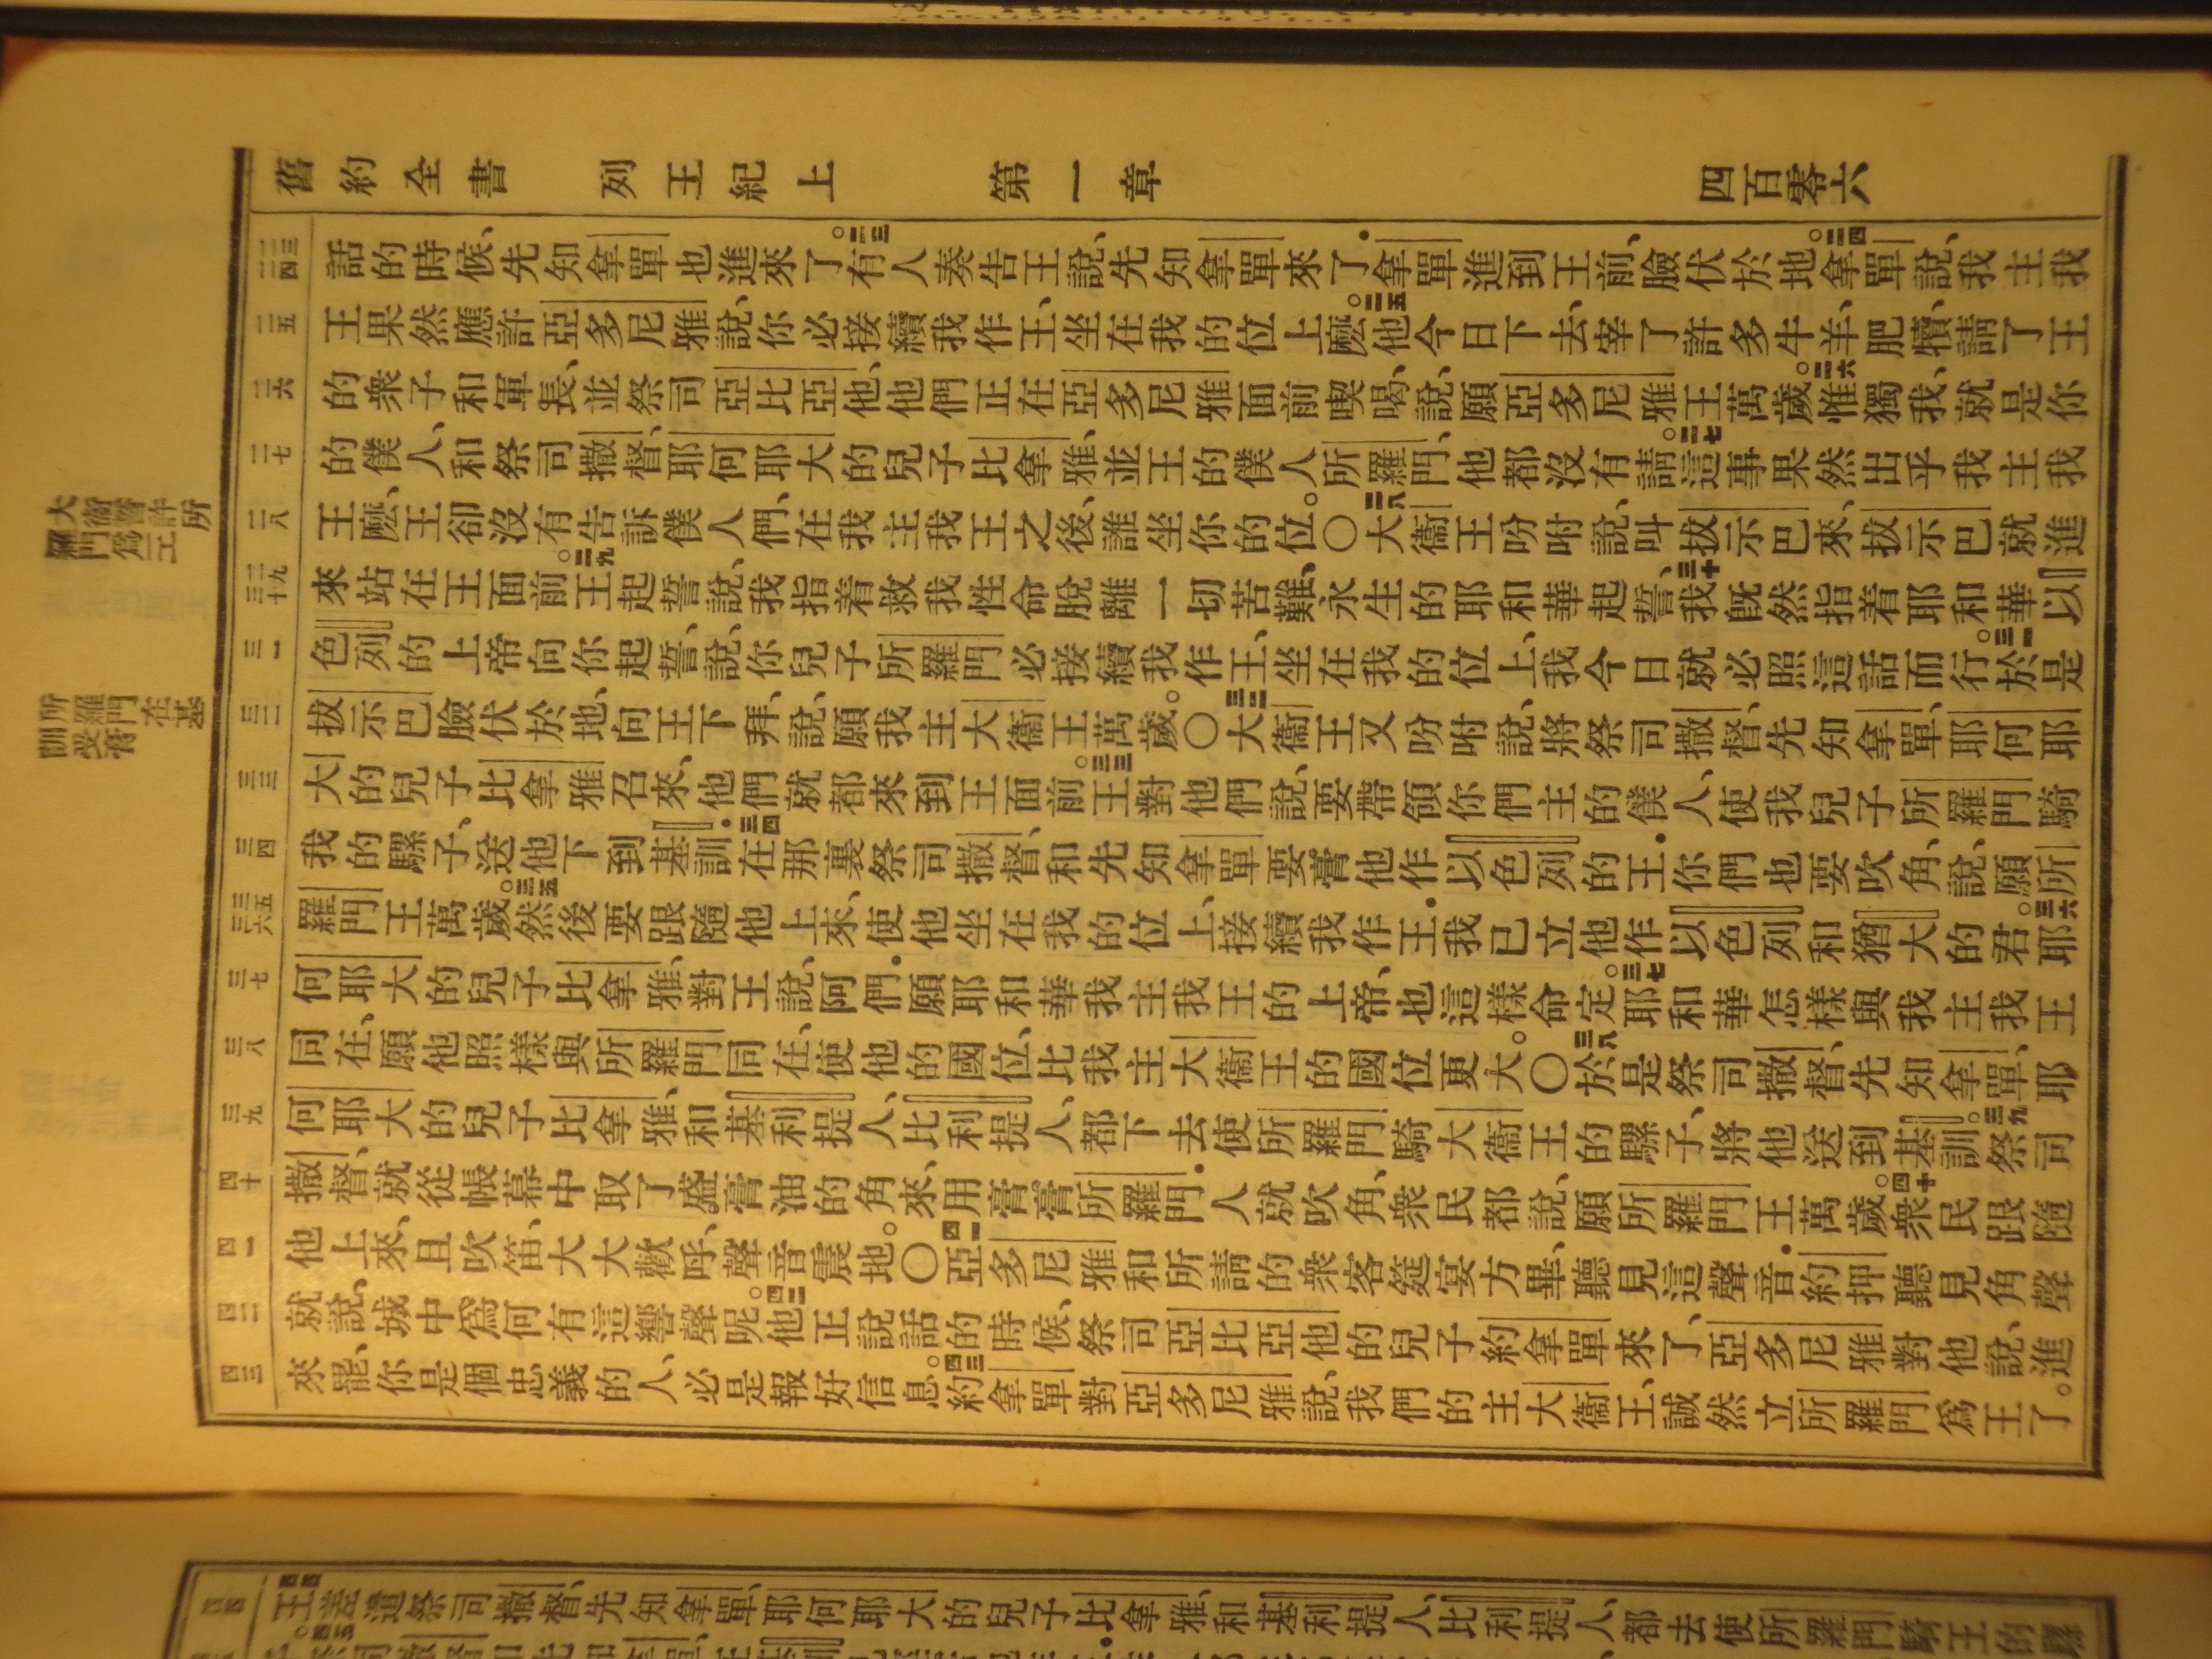 舊約全書 列王紀上 第一章 四百零六
大衛誓許所
羅門爲王
所羅門在基
訓受膏
二三 二四
話的時候、先知拿單也進來了。二三有人奏告王說、先知拿單來了．拿單進到王前、臉伏於地。二四拿單說、我主我
二五
王果然應許亞多尼雅說、你必接續我作王、坐在我的位上麽。二五他今日下去、宰了許多牛羊、肥犢、請了王
二六
的衆子和軍長、並祭司亞比亞他、他們正在亞多尼雅面前喫喝、說、願亞多尼雅王萬歲。二六惟獨我、就是你
二七
的僕人、和祭司撒督、耶何耶大的兒子比拿雅、並王的僕人所羅門、他都沒有請。二七這事果然出乎我主我
二八
王麽、王卻沒有告訴僕人們、在我主我王之後、誰坐你的位。〇二八大衛王吩咐說、叫拔示巴來、拔示巴就進
二九 三十
來站在王面前。二九王起誓說、我指着救我性命脫離一切苦難、永生的耶和華起誓、三十我旣然指着耶和華以
三一
色列的上帝向你起誓、說、你兒子所羅門必接續我作王、坐在我的位上、我今日就必照這話而行。三一於是
三二
拔示巴臉伏於地、向王下拜、說、願我主大衛王萬歲。〇三二大衛王又吩咐說、將祭司撒督、先知拿單、耶何耶
三三
大的兒子比拿雅召來、他們就都來到王面前。三三王對他們說、要帶領你們主的僕人、使我兒子所羅門騎
三四
我的騾子、送他下到基訓．三四在那裏祭司撒督、和先知拿單要膏他作以色列的王．你們也要吹角、說、願所
三五 三六
羅門王萬歲。三五然後要跟隨他上來、使他坐在我的位上、接續我作王．我已立他作以色列和猶大的君。三六耶
三七
何耶大的兒子比拿雅、對王說、阿們．願耶和華我主我王的上帝、也這樣命定。三七耶和華怎樣與我主我王
三八
同在、願他照樣與所羅門同在、使他的國位、比我主大衛王的國位更大。〇三八於是祭司撒督、先知拿單、耶
三九
何耶大的兒子比拿雅、和基利提人、比利提人、都下去使所羅門騎大衛王的騾子、將他送到基訓。三九祭司
四十
撒督、就從帳幕中取了盛膏油的角來、用膏膏所羅門．人就吹角、衆民都說、願所羅門王萬歲。四十衆民跟隨
四一
他上來、且吹笛、大大歡呼、聲音震地。〇四一亞多尼雅和所請的衆客筵宴方畢、聽見這聲音．約押聽見角聲
四二
就說、城中爲何有這響聲呢。四二他正說話的時候、祭司亞比亞他的兒子約拿單來了、亞多尼雅對他說、進
四三
來罷、你是個忠義的人、必是報好信息。四三約拿單對亞多尼雅說、我們的主大衛王、誠然立所羅門爲王了。
四四
四四王差遣祭司撒督、先知拿單、耶何耶大的兒子比拿雅、和基利提人、比利提人、都去使所羅門騎王的騾